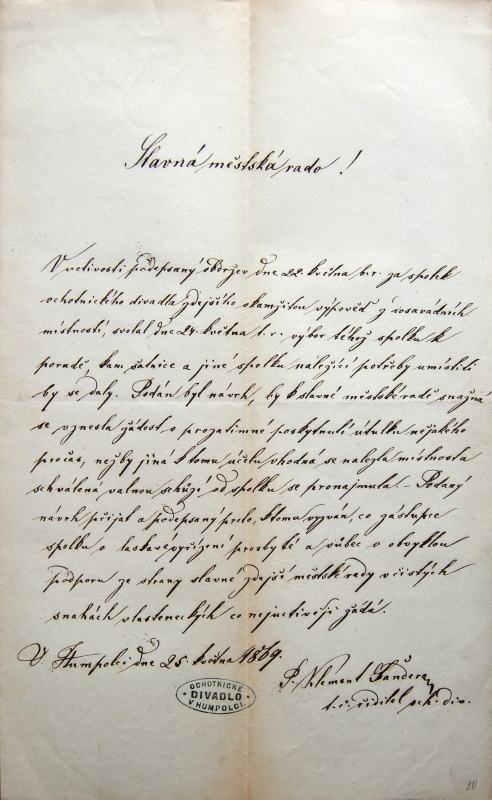 Slavná městská rado!
V uctivosti podepsaný obdržev dne 22. května b. r. za spolek
ochotnického divadla zdejšího okamžitou výpověď z dosavádních
místností, svolal dne 24. května t. r. výbor téhož spolku k
poradě, kam šatnice a jiné spolku náležící potřeby umístiti
by se daly. Podán byl návrh, by k slavné městské radě snažná
se vznesla žádost o prozatimné poskytnutí útulku nějakého
pročas, nežby jiná k tomu účelu vhodná se nalezla místnosť a
schválená valnou schůzí od spolku se pronajmula. – Podaný
návrh přijat a podepsaný proto, k tomu vyzván, co zástupce
spolku o laskavé vyřízení prosby té a vůbec o obvyklou
podporu ze strany slavné zdejší městské rady v čistých
snahách vlasteneckých co nejuctivěji žádá.
V Humpolci dne 25. května 1869.
P. Klement Šandera
t. č. ředitel och. div.
OCHOTNICKÉ
DIVADLO
V HUMPOLCI.
20